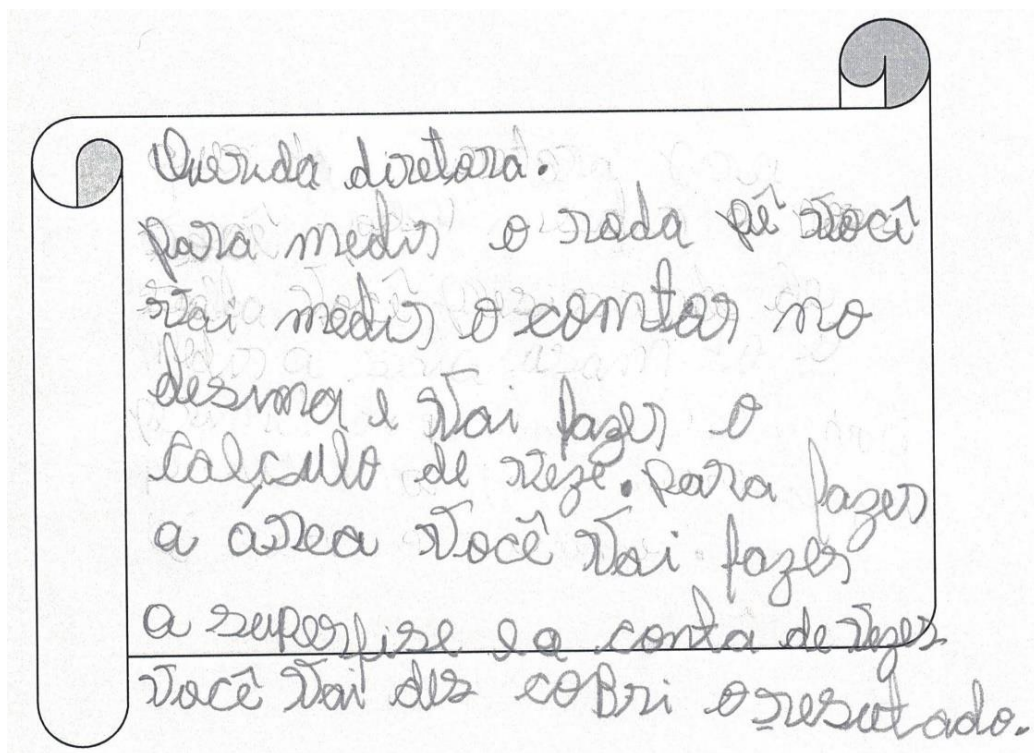 Querida diretora.
para medir o roda pé você
vai medir o comtor no
desima e vai fazer o
calculo de veze. para fazer
a área você vai fazer
a superfise e a conta de vezes
você vai des coBri o resutado.